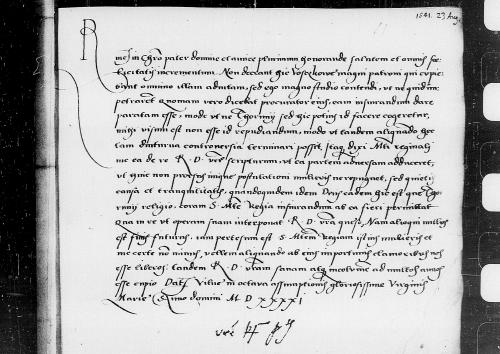 1541. 23 Aug
R
me in Chro pater domine et amice plurimum honorande salutem et omnis fœ
licitatis incrementum. Non deerant hic Foselkove magni patroni qui cupie
bant omnino illam adiutam, sed ego magno studio contendi, ut ne quid im
petraret. Quoniam vero dicebat procurator eius, eam iusiurandum dare
paratam esse, modo ut ne Thorunii sed hic potius id facere cogeretur,
mihi visum est non esse id repudiandum, modo ut tandem aliquando hec
tam diuturna controversia terminari possit, itaq dixi Mti reginali
me ea de re R. D. vre scripturum, ut ea partem adversam adduceret,
ut huic non prorsus inique postulationi mulieris ne repugnet, sed quieti
causa et tranquillitatis, quandoquidem idem Deus eadem hic est que Tho
runii religio, coram S. Mte Regia iusiurandum ab ea fieri permittat
Qua in re ut operam suam interponat R. D. vra queso. Nam alioqui nullus
est finis futurus, iam pertesum est S. Mtem Regiam istius mulieris et
me certe non minus, vellem aliquando ab eius importunis clamoribus nos
esse liberos. tandem R. D. vram sanam atq incolumem ad multos annos
esse cupio Dat Vilne in octava assumptionis gloriosissime Virginis
Marie Anno domini M D XXXXI